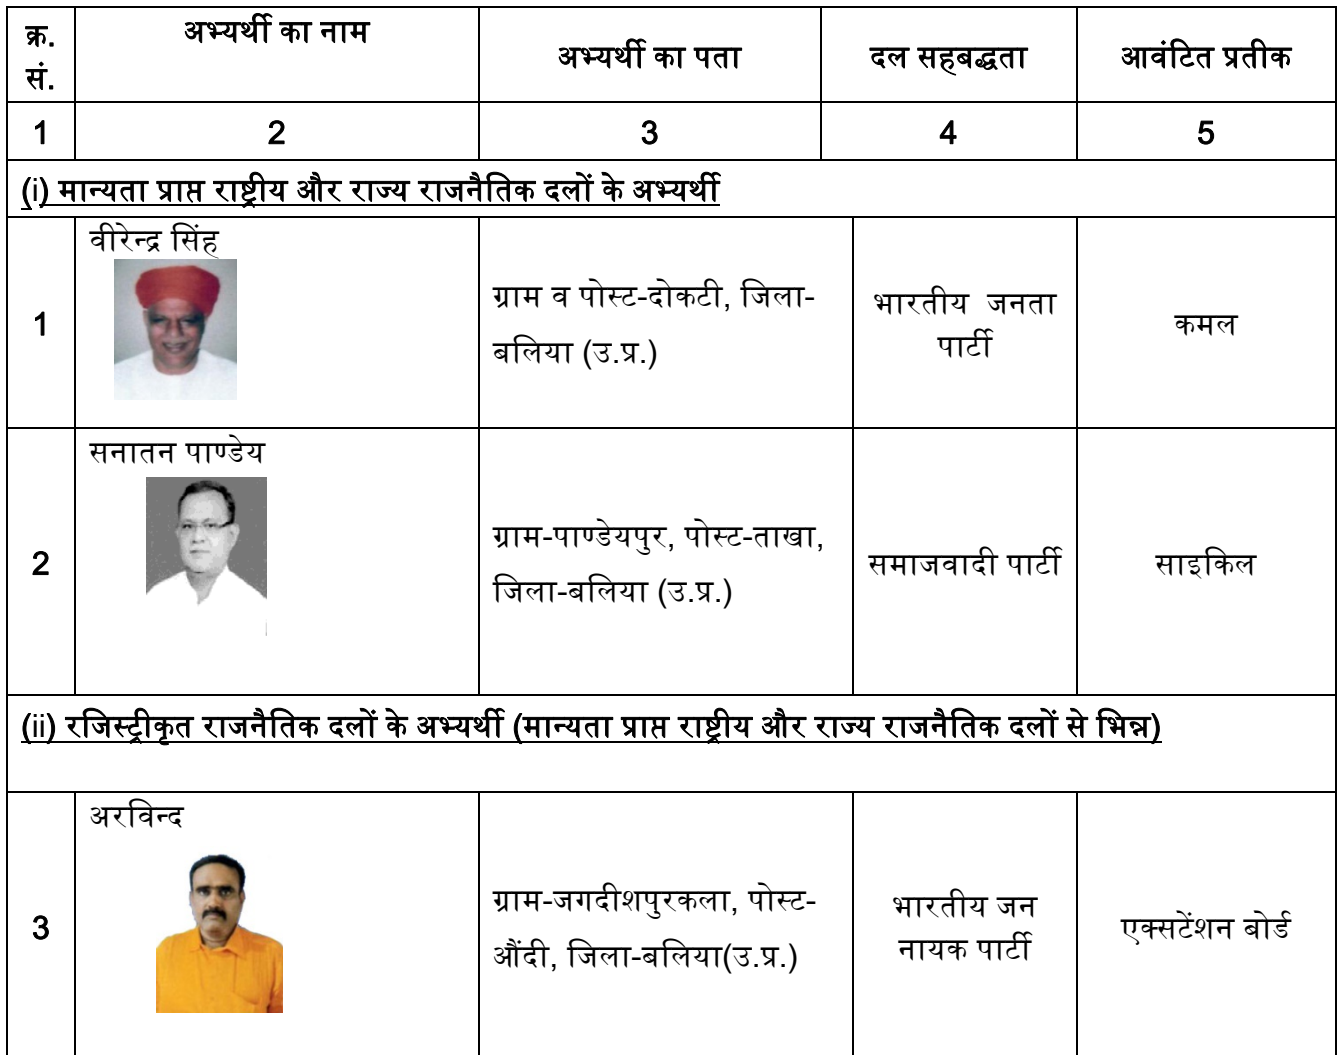 क्र. सं.
अभ्यर्थी का नाम
अभ्यर्थी का पता
दल सहबद्धता
आवंटित प्रतीक
1
2
3
4
5
(i) मान्यता प्राप्त राष्ट्रीय और राज्य राजनैतिक दलों के अभ्यर्थी
1
वीरेन्द्र सिंह
ग्राम व पोस्ट-दोकटी, जिला-
बलिया (उ.प्र.)
भारतीय जनता
पार्टी
कमल
2
सनातन पाण्डेय
ग्राम-पाण्डेयपुर, पोस्ट-ताखा,
जिला-बलिया (उ.प्र.)
समाजवादी पार्टी
साइकिल
(ii) रजिस्ट्रीकृत राजनैतिक दलों के अभ्यर्थी (मान्यता प्राप्त राष्ट्रीय और राज्य राजनैतिक दलों से भिन्न)
3
अरविन्द
ग्राम-जगदीशपुरकला, पोस्ट-
औंदी, जिला-बलिया(उ.प्र.)
भारतीय जन
नायक पार्टी
एक्सटेंशन बोर्ड